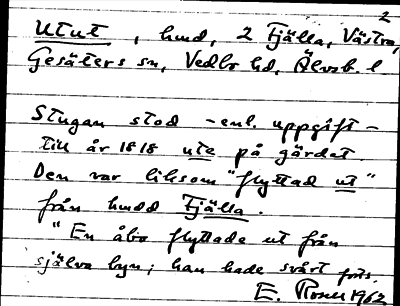 2
Utut, hmd, 2 Fjälla, Västra,
Gesäters sn, Vedbo hd, Älvsb. l
Stugan stod - enl. uppgift -
till år 1818 ute på gärdet.
Den var liksom "flyttad ut"
från hmdd Fjälla.
"En åbo flyttade ut från
själva byn; han hade svårt
E. 1962